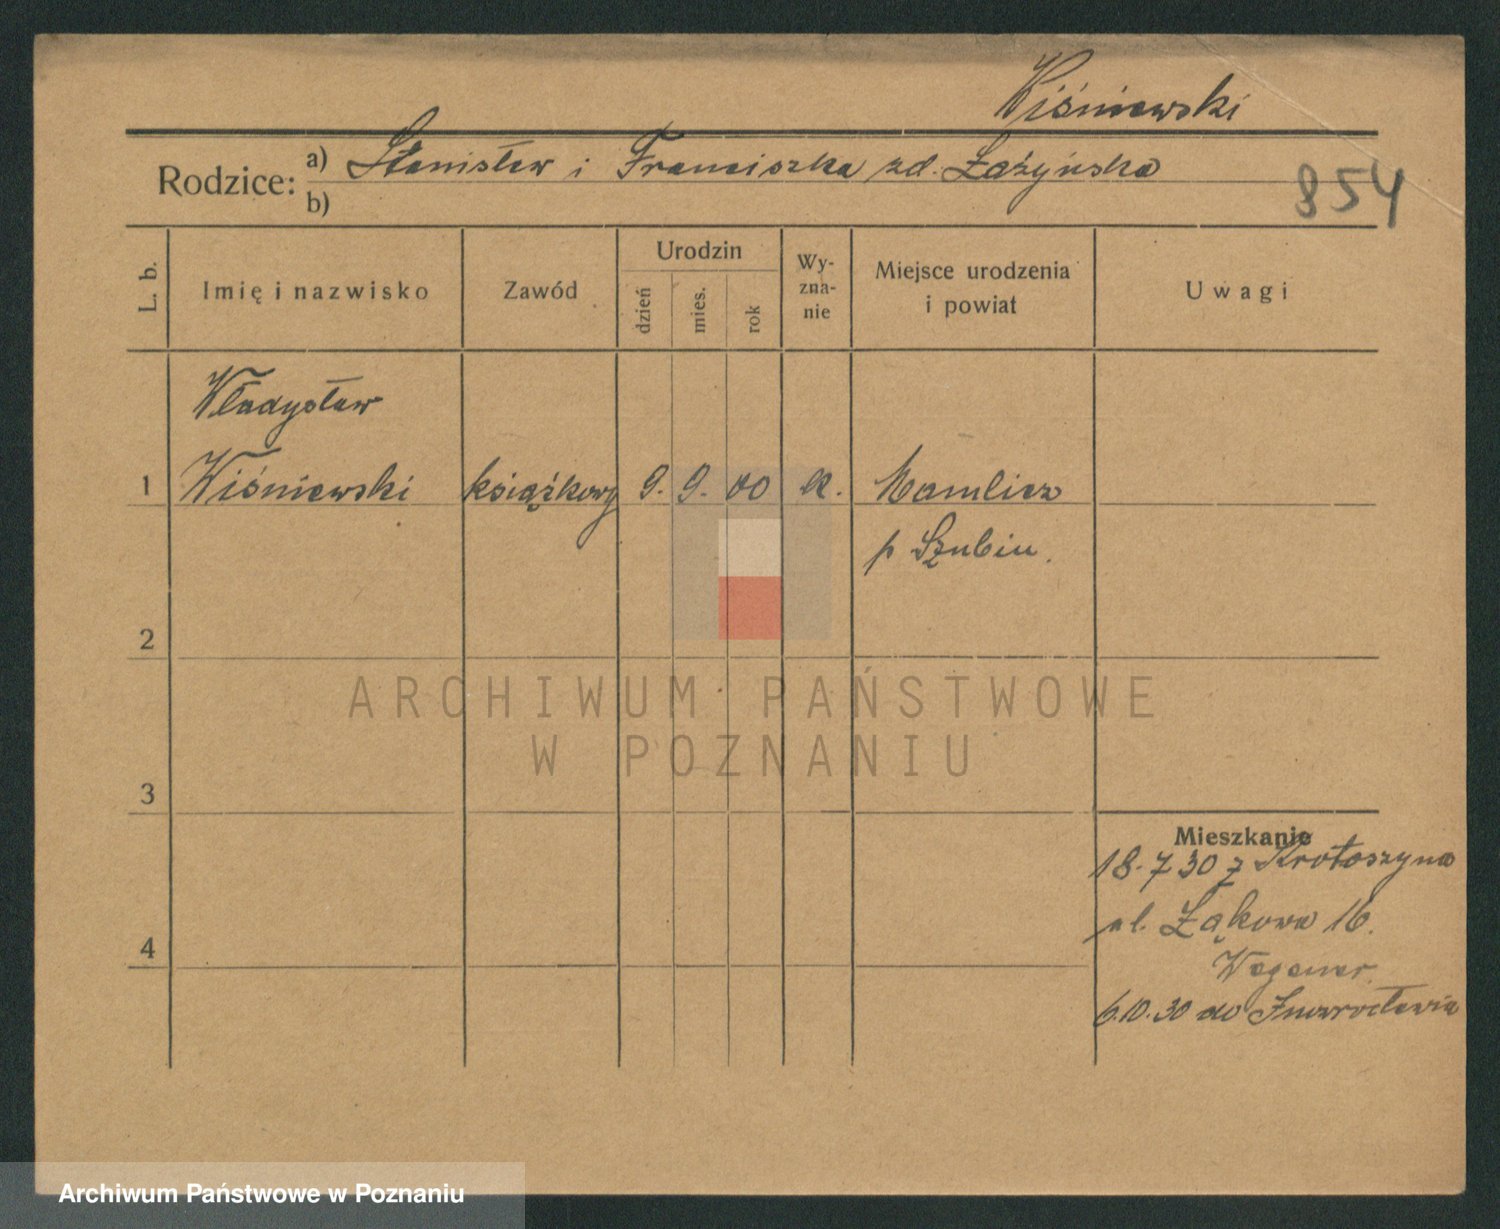 Wiśniewski
Rodzice: a) Stanisław i Franciszka zd. Łażyńska
b)
854
L. b.
Imię i nazwisko
Zawód
Urodzin
dzień
mies.
rok
Wy-
zna-
nie
Miejsce urodzenia
i powiat
Uwagi
Władysław
1 Wiśniewski książkowy 9. 9. 00 k. Mamlicz
p Szubin.
2
ARCHIWUM PAŃSTWOWE
W POZNANIU
3
Mieszkanie
18.7 30 z Krotoszyna
ul. Łąkowa 16.
4
Wegener
6.10.30 do Inowrocławia
Archiwum Państwowe w Poznaniu